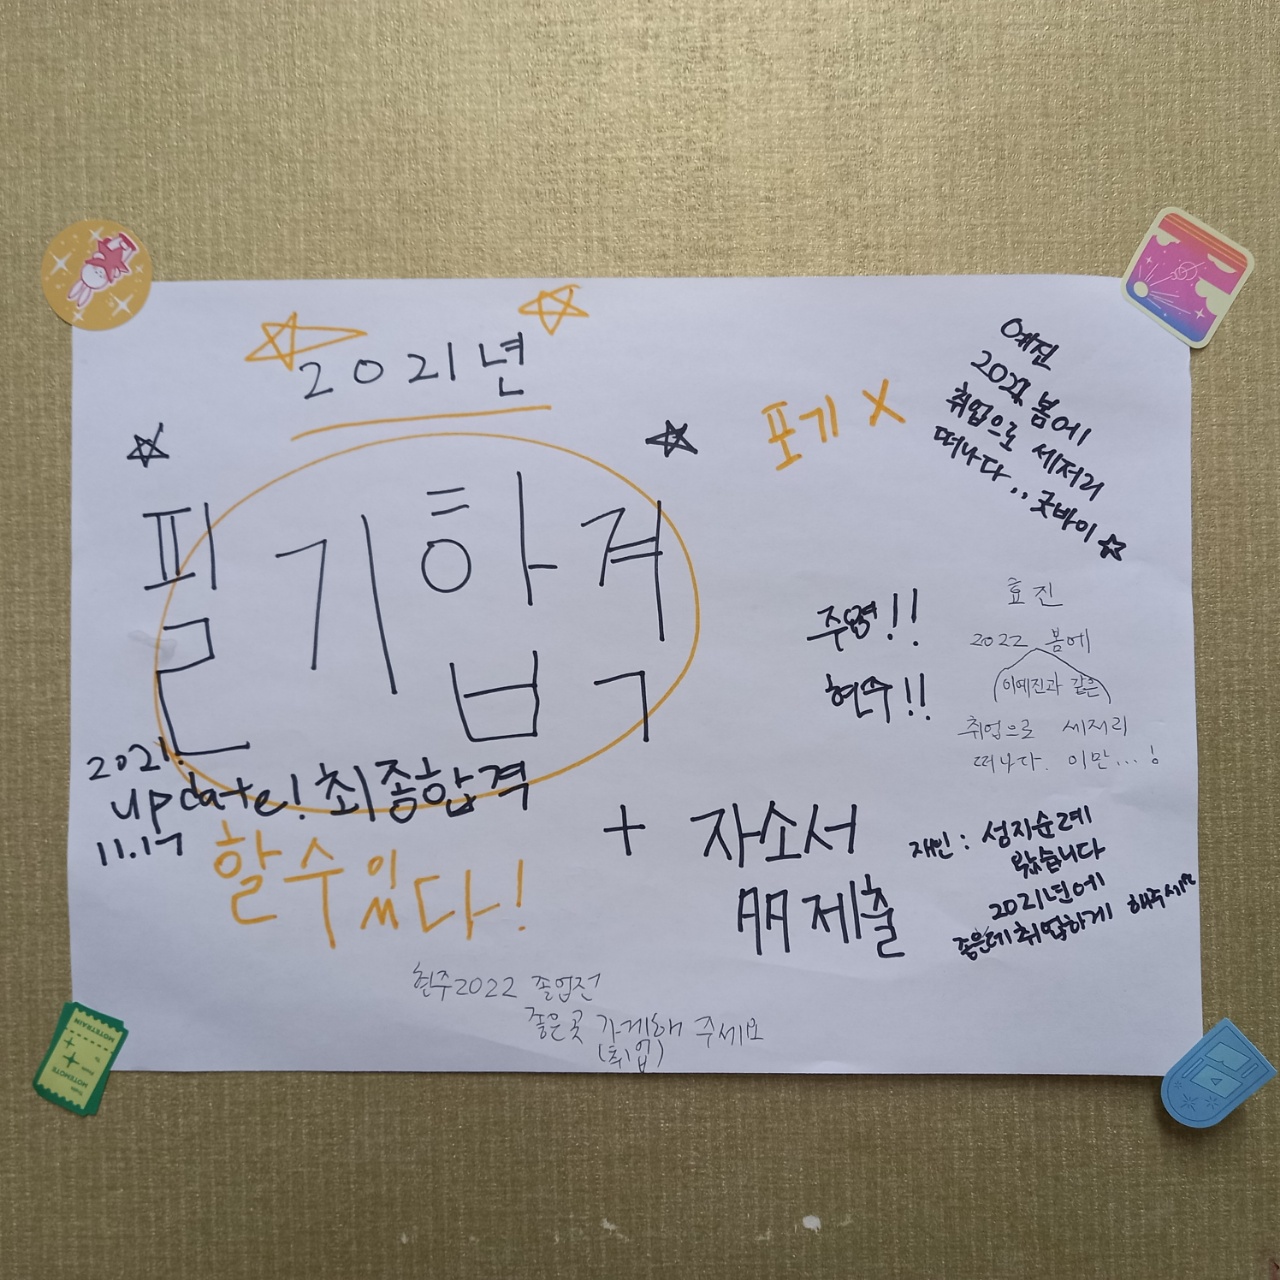 2021년
필기합격
2021.
update! 최종합격
11.17
할 수 있다!
포기 X
예진
2022 봄에
취업으로 세저리
떠나다.. 굿바이 ☆
주영!!
현수!!
효진
2022 봄에
(이예진과 같은)
취업으로 세저리
떠나다. 이만...!
+ 자소서
팍팍 제출
재인 : 성지순례
왔습니다
2021년에
좋은데 취업하게 해주세요
현주 2022 졸업전
좋은곳 가게해 주세요
(취업)
MOTETRAIN
MOTEMOTE